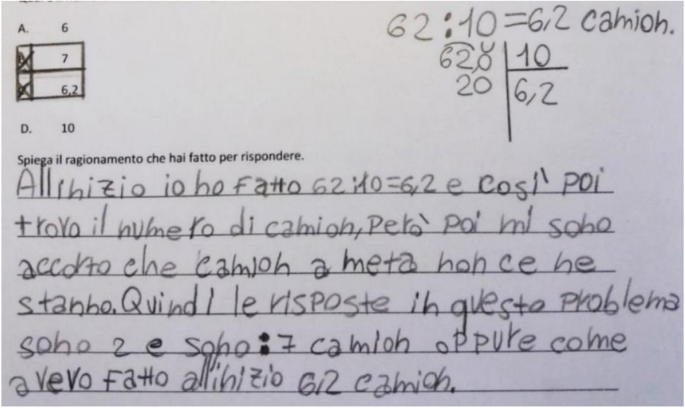 62:10=6,2 camion.
620 | 10
20 | 6,2
A. 6
B. 7
C. 6,2
D. 10
Spiega il ragionamento che hai fatto per rispondere.
All'inizio io ho fatto 62:10=6,2 e così poi
trovo il numero di camion, però poi mi sono
accorto che camion a metà non ce ne
stanno. Quindi le risposte in questo problema
sono 2 e sono: 7 camion oppure come
avevo fatto all'inizio 6,2 camion.